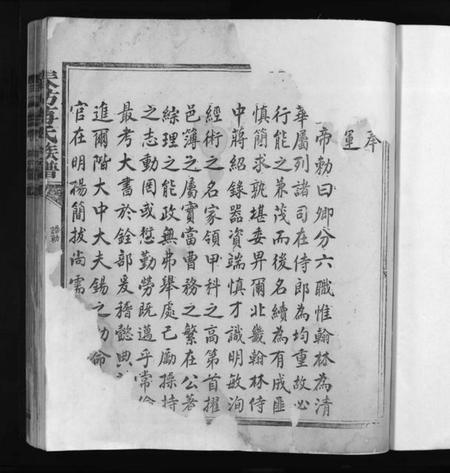 奉
運
帝勅曰卿分六職惟翰林為清
華屬列諸司在侍郎為均重故必
行能之兼茂而後名績為有成匪
慎簡求孰堪委畀爾北畿翰林侍
中蔣紹錄器資端慎才識明敏洵
經術之名家領甲科之高第首擢
邑簿之屬實當曹務之繁在公著
綜理之能政無弗舉處己勵操持
之志動罔或愆勤勞既邁乎常
最考大書於銓部爰稽懿典
進爾階大中大夫錫之
命
官在明陽簡拔尚需
氏族譜
誥勅